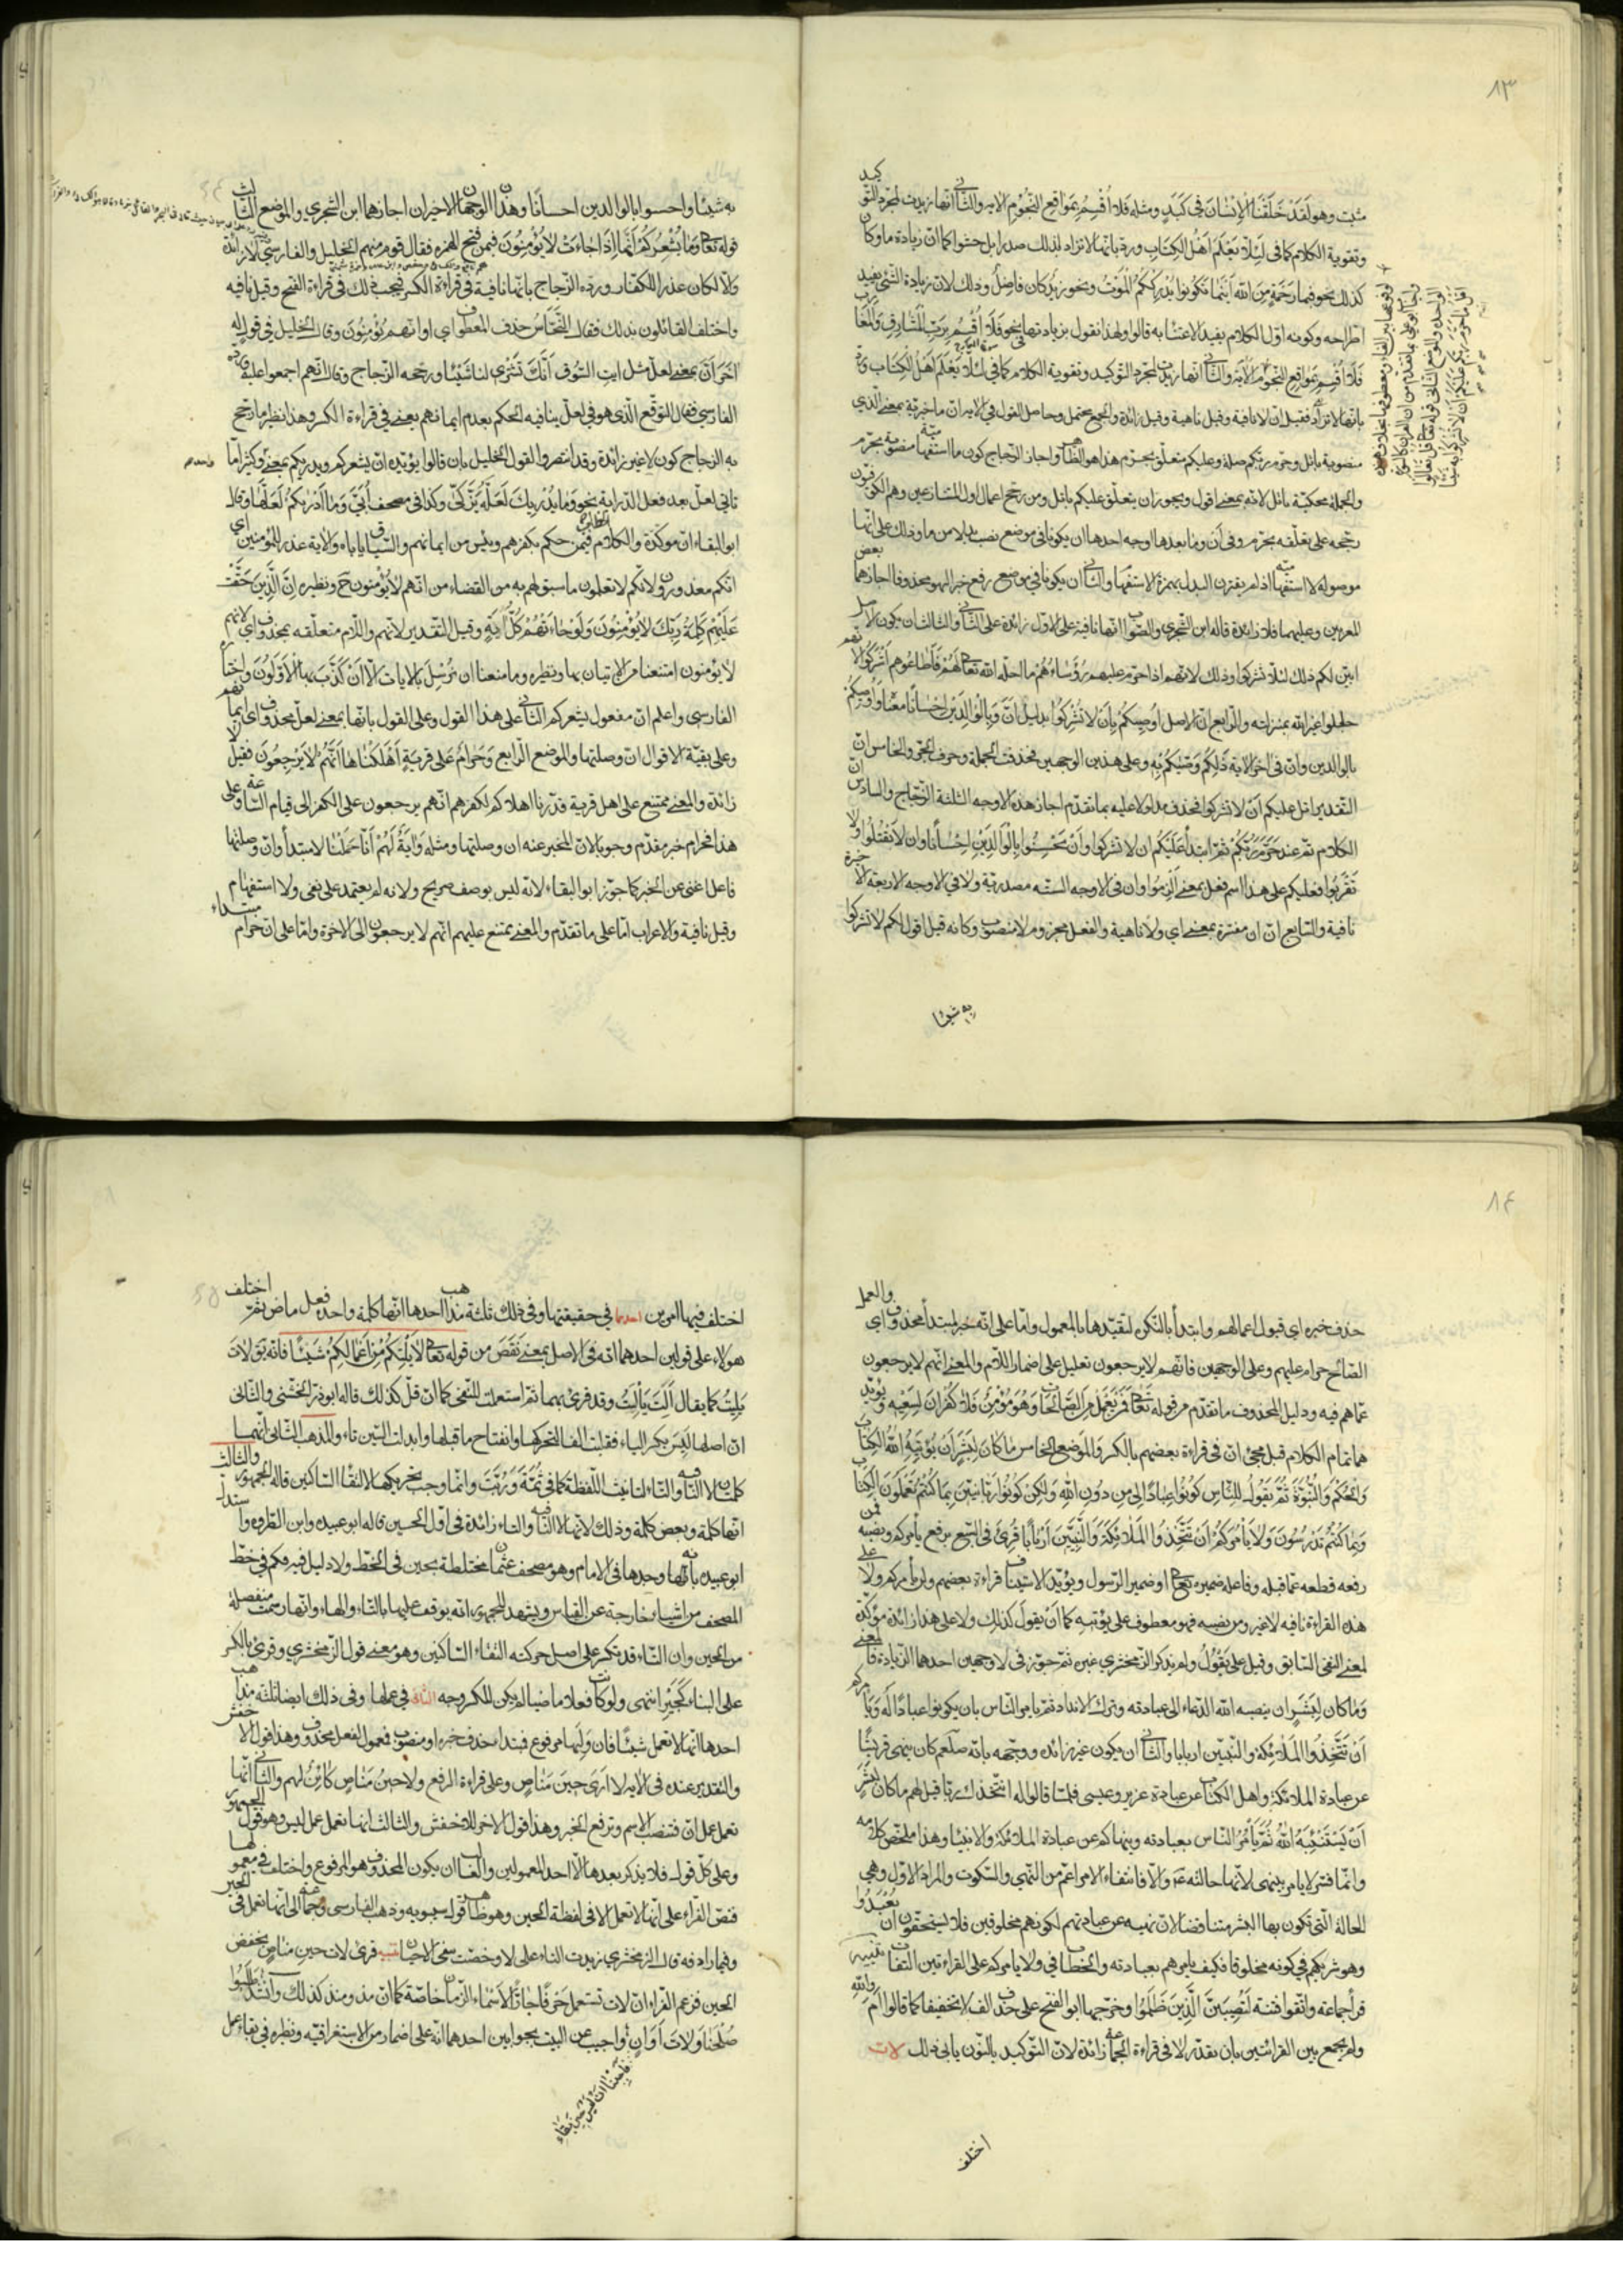 ٨٣
كبد
مثبت وهو لَقَدْ خَلَقْنَا الْإِنْسَانَ فِي كَبَدٍ ومثله فَلَا أُقْسِمُ بِمَوَاقِعِ النُّجُومِ الآية والثاني انها زيدت لمجرد التو
وتقوية الكلام كما في لِئَلَّا يَعْلَمَ أَهْلُ الْكِتَابِ ورد بانها لا تزاد لذلك صدرا بل حشوا كما ان زيادة ما وكان
كذلك نحو فبما رحمة مِنَ الله أَيْنَمَا تَكُونُوا يُدْرِكْكُمُ الْمَوْتُ ونحو زيد كان فاضل وذلك لان زيادة الشئ يفيد
اطراحه وكونه اول الكلام يفيد الاعتنا به قالوا ولهذا نقول بزيادتها في نحو فَلَا أُقْسِمُ بِرَبِّ الْمَشَارِقِ وَالْمَغَارِب
فَلَا أُقْسِمُ بمواقع النجوم الآية والثاني انها زيدت لمجرد التوكيد وتقوية الكلام كما في لِئَلَّا يَعْلَمَ أَهْلُ الْكِتَابِ ورد
بانها لا تزاد فقيل ان لا نافية وقيل ناهية وقيل زائدة والجميع محتمل وحاصل القول في الآية ان ما خبرية بمعنى الذي
منصوبة باتل وحرم ربكم صلة وعليكم متعلق بحرم هذا هو الظاهر واجاز الزجاج كون ما استفهامية منصوبة بحرم
والجملة محكية باتل لانه بمعنى اقول ويجوز ان يتعلق عليكم باتل ومن رجح اعمال اول المتنازعين وهم الكوفيون
رجحه على تعلقه بحرم وفي أن وما بعدها اوجه احدها ان يكونا في موضع نصب بدلا من ما وذلك على انها
موصولة لا استفهامية اذ لم يقترن البدل بهمزة الاستفهام والثاني ان يكونا في موضع رفع خبرا لهو محذوفا اجازهما بعض
المعربين وعليهما فلا زائدة قاله ابن الشجري والصواب انها نافية على الاول زائدة على الثاني والثالث ان يكون الاصل
ابين لكم ذلك لئلا تشركوا وذلك لانهم اذا حرم عليهم رؤساءُهُم ما احله الله تعالى لهم فَأَطَاعُوهم أَشْرَكُوا لانهم
جعلوا غير الله بمنزلته والرابع ان الاصل اوصيكم بِأَنْ لا تُشْرِكُوا بدليل ان وَبِالْوَالِدَيْنِ إِحْسَانًا معناه وأوصيكم
بالوالدين وأن في اخر الآية ذَلِكُمْ وَصَّاكُمْ بِهِ وعلى هذين الوجهين فحذفت الجملة وحرف الجر والخامس ان
التقدير اتل عليكم أَنْ لا تشركوا فحذف مدلولا عليه بما تقدم اجاز هذه الاوجه الثلثة الزجاج والسادس ان
الكلام تم عند حَرَّمَ رَبُّكُمْ ثم ابتدأ عَلَيْكُمْ ان لا تشركوا وَأَنْ تُحْسِنُوا بِالْوَالِدَيْنِ إِحْسَانًا وان لا تَقْتُلُوا ولا
تَقْرَبُوا فعليكم على هذا اسم فعل بمعنى أَلْزِمُوا وان في الاوجه الستة مصدرية ولا في الاوجه الاربعة الاخيرة
نافية والسابع ان ان مفسرة بمعنى اي ولا ناهية والفعل مجزوم لا منصوب وكانه قيل اقول لكم لا تشركوا
به شيئا
به شيئا واحسنوا بالوالدين احسانا وهذان الوجهان الاخيران اجازهما ابن الشجري والموضع الثالث
قوله تعالى وَمَا يُشْعِرُكُمْ أَنَّهَا إِذَا جَاءَتْ لَا يُؤْمِنُونَ فيمن فتح الهمزه فقال قوم منهم الخليل والفارسي لا زائدة
والا لكان عذرا للكفار ورده الزجاج بانها نافية في قراءة الكسر فيجب ذلك في قراءة الفتح وقيل نافيه
واختلف القائلون بذلك فقال النَّحَّاسُ حذف المعطوف اي او انهم يُؤْمِنُونَ وقال الخليل في قول له
آخَرَ أَنَّ بمعنى لعل مثل ايت السوق أَنَّكَ تَشْتَرِي لنا شَيْئًا ورجحه الزجاج وقال انهم اجمعوا عليه ورده
الفارسي فقال التوقع الذي هو في لعل ينافيه الحكم بعدم ايمانهم يعني في قراءة الكسر وهذا نظير ما رجح
به الزجاج كون لا غير زائدة وقد انتصروا لقول الخليل بان قالوا يؤيده ان يشعركم ويدريكم بمعنى وكثيرا ما
تاتي لعل بعد فعل الدراية نحو وَمَا يُدْرِيكَ لَعَلَّهُ يَزَّكَّى وكذا في مصحف أُبَيّ وَمَا أَدْرَاكُمْ لَعَلَّهَا وقال
ابو البقاء ان مؤكدة والكلام فيمن حكم بكفرهم ويئس من ايمانهم والسياق يأباه والآية عذر للمؤمنين اي
انكم معذورون لانكم لا تعلمون ما سبق لهم به من القضاء من انهم لا يُؤْمِنون ح ونظيره إِنَّ الَّذِينَ حَقَّتْ
عَلَيْهِمْ كَلِمَةُ رَبِّكَ لَا يُؤْمِنُونَ وَلَوْ جَاءَتْهُمْ كُلُّ آيَةٍ وقيل التقدير لانهم واللام متعلقه بمحذوف اي لانهم
لا يؤمنون امتنعنا من الاتيان بها ونظيره وما منعنا ان نُرْسِلَ بالآيات إلا أَنْ كَذَّبَ بِهَا الْأَوَّلُونَ واختاره
الفارسي واعلم ان مفعول يشعركم الثاني على هذا القول وعلى القول بانها بمعنى لعل محذوف اي ايمانهم
وعلى بقية الاقوال ان وصلتها والموضع الرابع وَحَرَامٌ عَلَى قَرْيَةٍ أَهْلَكْنَاهَا أَنَّهُمْ لَا يَرْجِعُونَ فقيل لا
زائدة والمعنى ممتنع على اهل قرية قدرنا اهلاكهم لكفرهم انهم يرجعون على الكفر الى قيام الساعة وعلى
هذا فحرام خبر مقدم وجوبا لان المخبر عنه ان وصلتها ومثله وَآيَةٌ لَهُمْ أَنَّا حَمَلْنَا لا مبتدأ وان وصلتها
فاعل اغنى عن الخبر كما جوز ابو البقاء لانه ليس بوصف صريح ولانه لم يعتمد على نفي ولا استفهام
وقيل نافية والاعراب اما على ما تقدم والمعنى يمتنع عليهم انهم لا يرجعون الى الاخرة واما على ان حرام مبتداء
٨٤
حذف خبره اي قبول اعمالهم وابتدأ بالنكرة لتقيدها بالمعمول واما على انه خبر لمبتدأ محذوف اي والعمل
الصالح حرام عليهم وعلى الوجهين فانهم لا يرجعون تعليل على اضمار اللام والمعنى انهم لا يرجعون
عما هم فيه ودليل المحذوف ما تقدم من قوله تعالى فَمَنْ يَعْمَلْ مِنَ الصَّالِحَاتِ وَهُوَ مُؤْمِنٌ فَلَا كُفْرَانَ لِسَعْيِهِ ويؤيد
هما تمام الكلام قبل مجئ ان في قراءة بعضهم بالكسر وَالموضع الخامس مَا كَانَ لِبَشَرٍ أَنْ يُؤْتِيَهُ اللهُ الْكِتَابَ
وَالْحُكْمَ وَالنُّبُوَّةَ ثُمَّ يَقُولَ لِلنَّاسِ كُونُوا عِبَادًا لِي مِنْ دُونِ اللهِ وَلَكِنْ كُونُوا رَبَّانِيِّينَ بِمَا كُنْتُمْ تُعَلِّمُونَ الْكِتَابَ
وَبِمَا كُنْتُمْ تَدْرُسُونَ وَلَا يَأْمُرَكُمْ أَنْ تَتَّخِذُوا الْمَلَائِكَةَ وَالنَّبِيِّينَ أَرْبَابًا قُرِئَ في السبع برفع يأمركم ونصبه فمن
رفعه قطعه عما قبله وفاعله ضميره تعالى او ضمير الرسول ويؤيد الاستيناف قراءة بعضهم ولن يأمركم ولا على
هذه القراءة نافيه لا غير ومن نصبه فهو معطوف على يؤتيه كما أَنَّ يقولَ كذلك ولا على هذا زائدة مؤكدة
لمعنى النفي السابق وقيل على يَقُولَ ولم يذكر الزمخشري غيره ثم جوز في لا وجهين احدهما الزيادة فالمعنى
وَمَا كَانَ لِبَشَرٍ ان ينصبه الله للدعاء الى عبادته وترك الانداد ثم يامر الناس بان يكونوا عبادًا لَه وَيَأمركم
أَنْ تَتَّخِذُوا الْمَلَائِكَةَ والنبيين اربابا والثاني ان يكون غير زائده ووجهه بانه صلعم كان ينهى قريشًا
عن عبادة الملائكة واهل الكتاب عن عبادة عزير وعيسى فلما قالوا له انتخذك ربا قيل لهم ما كان لِبَشَرٍ
أَنْ يَسْتَنْبِئَهُ اللهُ ثُمَّ يَأْمُرَ الناس بعبادته وينهاكم عن عبادة الملائكة والانبيا وهذا ملخص كلامه
وانما فسر لا يامر بينهى لانها حالته ع والا فانتفاء الامر اعم من النهي والسكوت والمراد الاول وهي
الحالة التي تكون بها البشر متناقضا لان نهيه عن عبادتهم لكونهم مخلوقين فلا يستحقون ان يُعْبَدُوا
وهو شريكهم في كونه مخلوقا فكيف يامرهم بعبادته والخطاب في ولا يامركم على القراءتين التفات تنبيه
قرأ جماعة واتقوا فتنة لَتُصِيبَنَّ الَّذِينَ ظَلَمُوا وخرجها ابو الفتح على حذف الف لا تخفيفا كما قالوا أَمَ وَاللهِ
ولم يجمع بين القراءتين بان يقدر لا في قراءة الجماعة زائدة لان التوكيد بالنون يابى ذلك لات
اختلف
اختلف فيها امرين احدهما في حقيقتها وفي ذلك ثلثة مذاهب احدها انها كلمة واحدة فعل ماض ثم اختلف
هولاء على قولين احدهما انه في الاصل بمعنى نَقَصَ من قوله تعالى لَا يَلِتْكُمْ مِنْ أَعْمَالِكُمْ شَيْئًا فانه يقال لات
يَلِيتُ كما يقال أَلَتَ يَأْلِتُ وقد قرئ بهما ثم استعملت للنفي كما ان قلّ كذلك قاله ابو ذر الخشني والثاني
ان اصلها لَيِسَ بكسر الياء فقلبت الفا لتحركها وانفتاح ما قبلها وابدلت السين تاء والمذهب الثاني انها
كلمتان لا النافيه والتاء لتانيث اللفظة كما في ثُمَّتَ وَرُبَّتَ وانما وجب تحريكها لالتقا الساكنين قاله الجمهور والثالث
انها كلمة وبعض كلمة وذلك لانها لا النافيه والتاء زائدة في اول الحين قاله ابو عبيده وابن الطراوه واستدل
ابو عبيده بانه وجدها في الامام وهو مصحف عثمان مختلطة بحين في الخط ولا دليل فيه فكم في خط
المصحف من اشياء خارجة عن القياس ويشهد للجمهور انه يوقف عليها بالتاء والهاء وانها رسمت منفصلة
من الحين وان التاء قد تكسر على اصل حركة التقاء الساكنين وهو معنى قول الزمخشري وقرئ بالكسر
على البناء كَجَيْرِ انتهى ولو كانت فعلا ماضيا لم يكن للكسر وجه الثاني في عملها وفي ذلك ايضا ثلثة مذاهب
احدها انها لا تعمل شيئًا فان وَلِيَها مرفوع فمبتداء حذف خبره او منصوب فمعمول لفعل محذوف وهذا قول الاخفش
والتقدير عنده في الايه لا ارَى حِينَ مَنَاصٍ وعلى قراءة الرفع ولا حِينُ مَنَاصٍ كَائِنٌ لهم والثاني انها
تعمل عمل انّ فتنصب الاسم وترفع الخبر وهذا قول اخر للاخفش والثالث انها تعمل عمل ليس وهو قول الجمهور
وعلى كل قول فلا يذكر بعدها الا احد المعمولين والغالب ان يكون المحذوف هو المرفوع واختلف في معمولها
فنص الفراء على انها لا تعمل الا في لفظة الحين وهو ظاهر قول سيبويه وذهب الفارسى وجماعة الى انها تعمل في الحين
وفيما رادفه قال الزمخشري زيدت التاء على لا وخصت بنفي الاحيان تنبيه قرئ لات حينِ مناصٍ بخفض
الحين فزعم الفراء ان لات تستعمل حَرْفًا جَارًّا لأسْمَاء الزمان خاصّة كما ان مذ ومنذ كذلك وانشد طَلَبُوا
صُلْحَنَا وَلَاتَ أَوَانٍ واجيب عن البيت بجوابين احدهما انه على اضمار من الاستغراقيه ونظيره في بقاء عمل
فأَجَبْنَا أن ليس حين بَقَاء